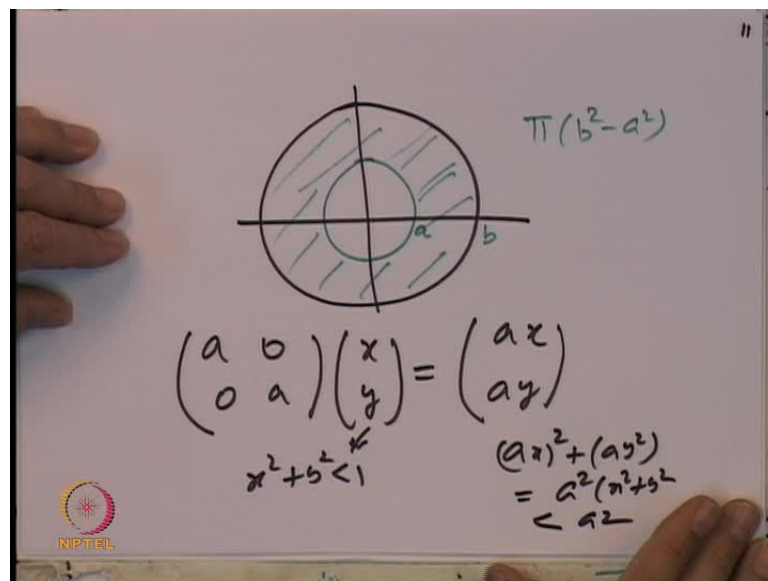 11
π(b² - a²)
a
b
(a 0
0 a) (x
y) = (ax
ay)
x² + y² < 1
(ax)² + (ay²)
= a²(x² + y²
< a2
NPTEL